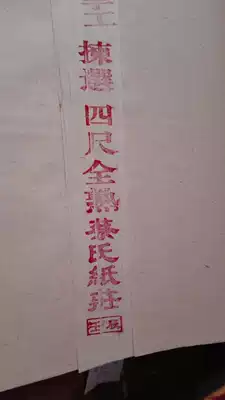 手工揀選四尺全熟蔡氏紙莊